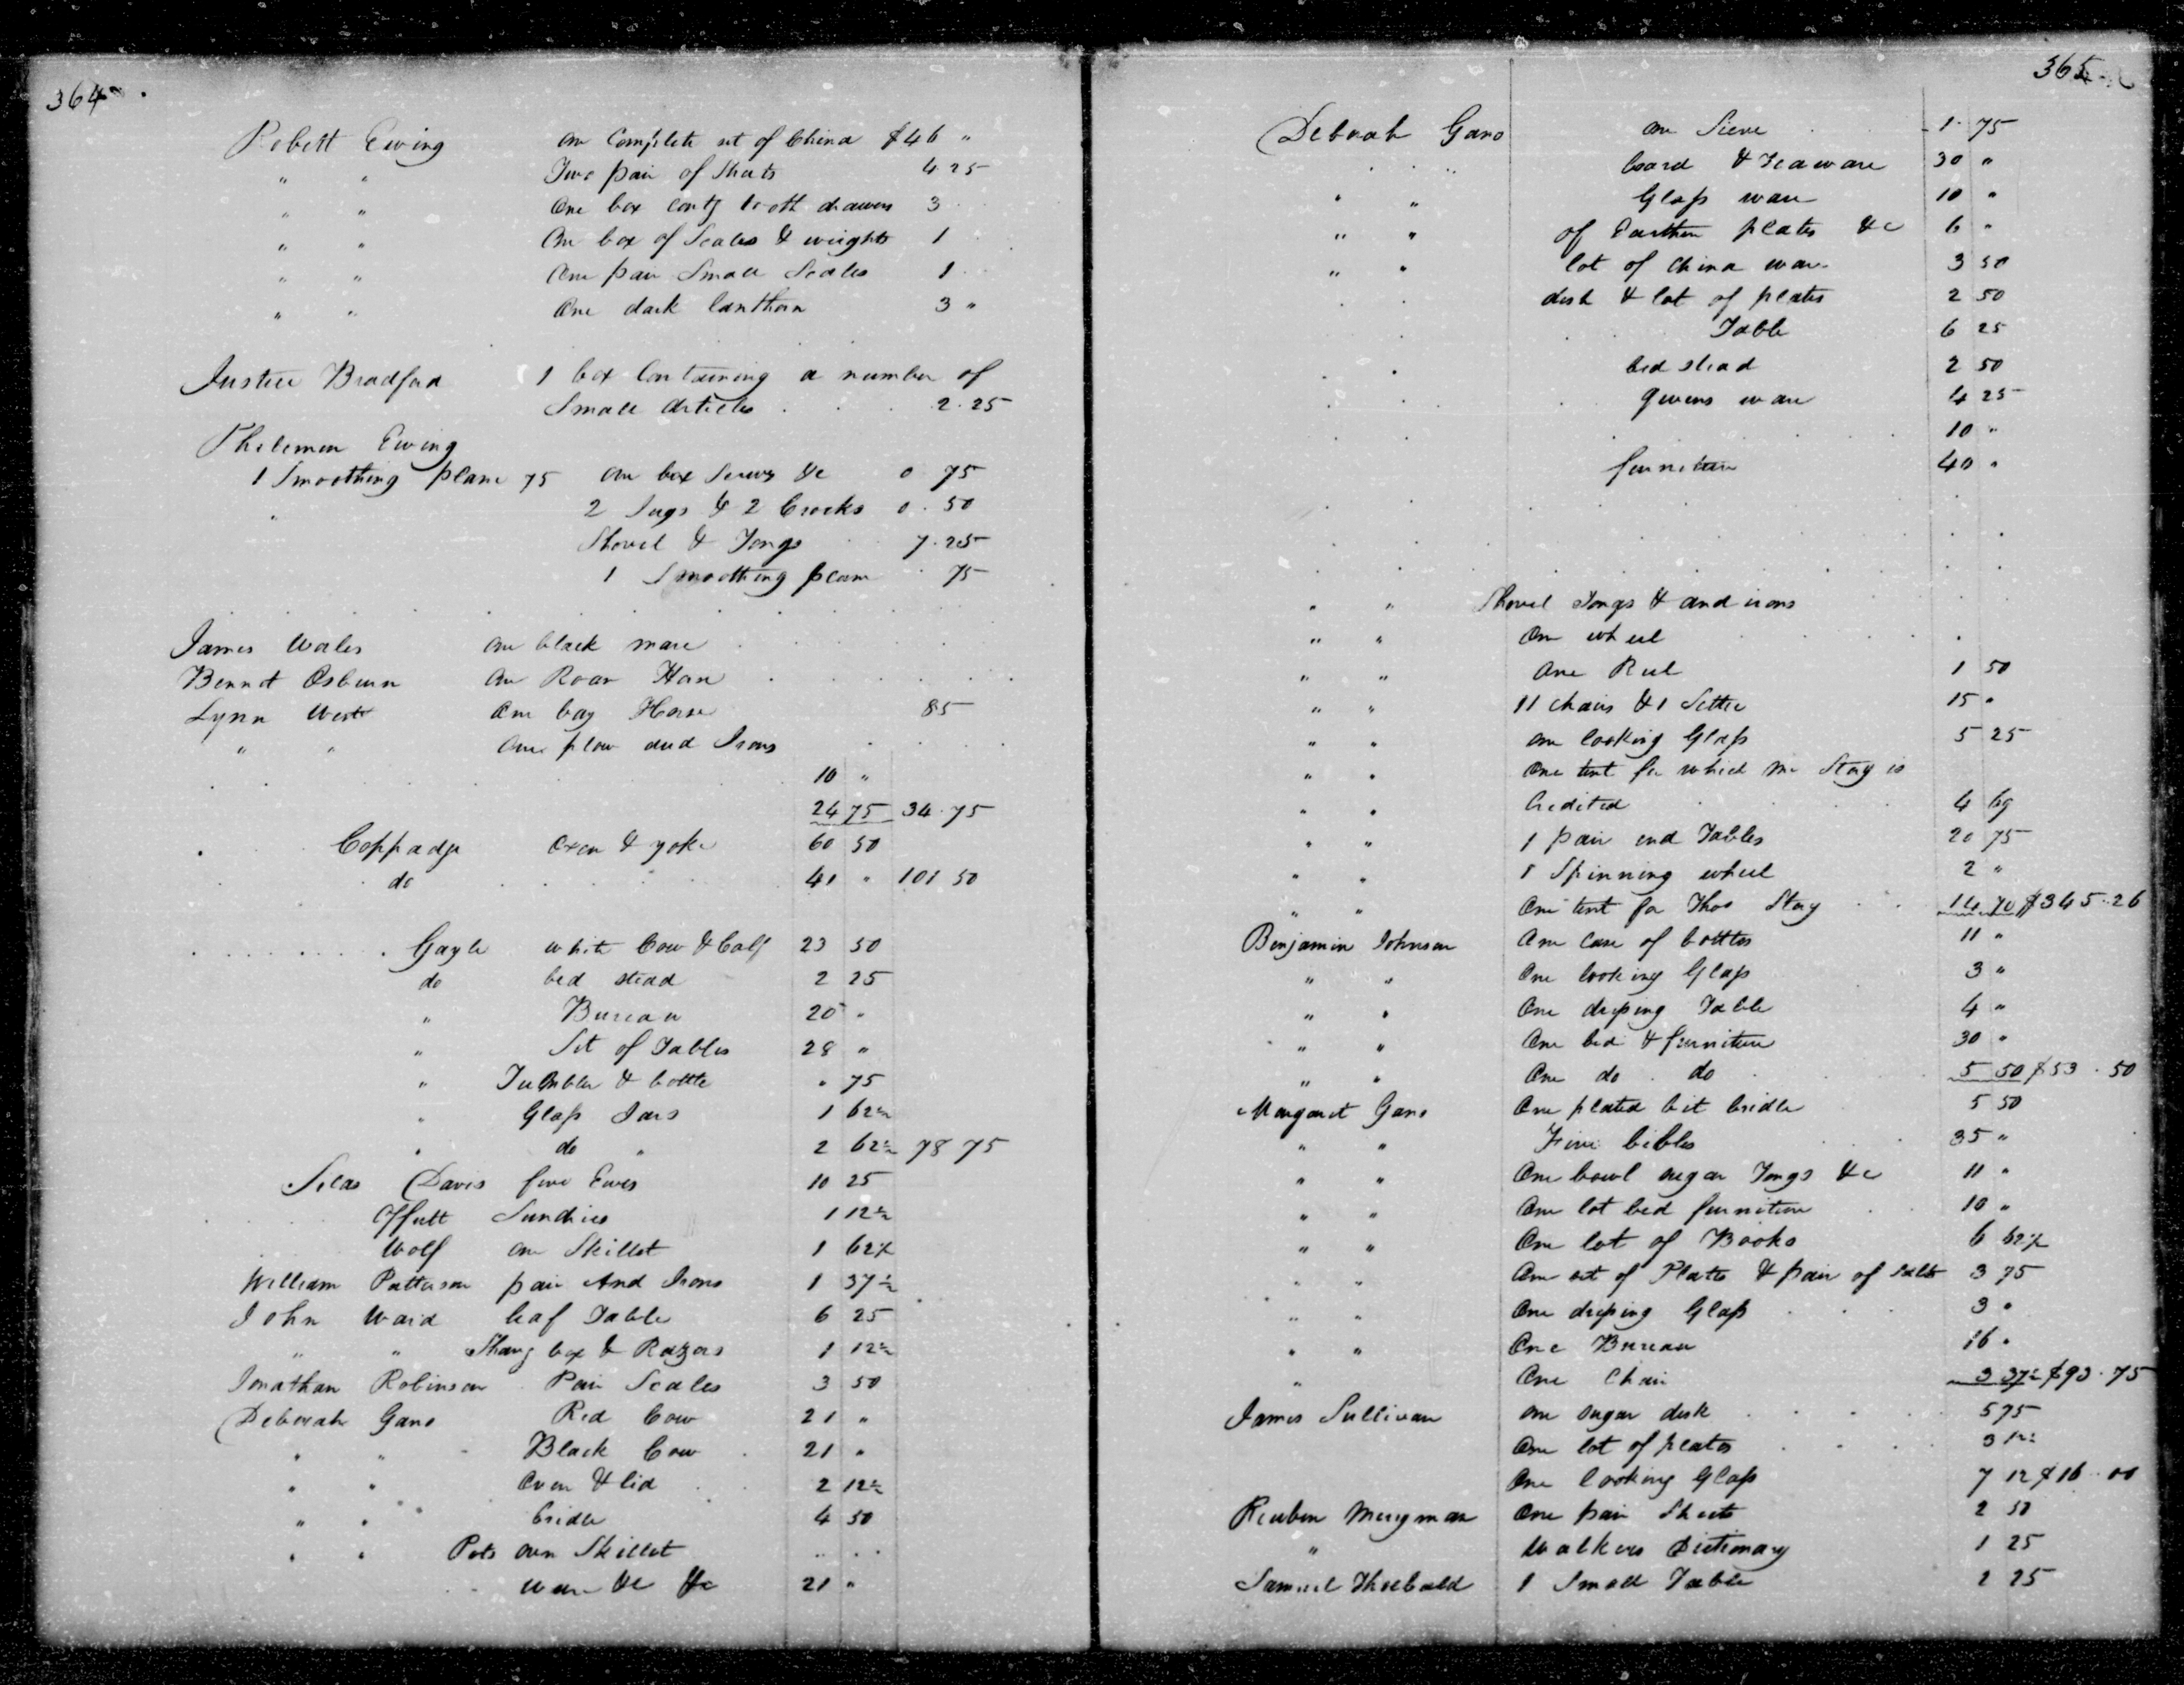 364
Robert Ewing One Complete set of China $46 "
" " Two pair of Sheets 4 25
" " One box contg tooth drawers 3
" " One box of Scales & weights 1
" " One pair Small Scales 1
" " One dark lanthorn 3 "
Justice Bradford 1 box Containing a number of
Small Articles . . . 2.25
Philemon Ewing
1 Smoothing plane 75 One box Screws &c 0 75
2 Jugs & 2 Crocks 0 . 50
Shovel & Tongs 7.25
1 Smoothing plane 75
James Wales One black mare
Bennet Osburn One Roan Horse
Lynn West One bay Horse 85
" " One plow and Irons
10 "
24 75 34.75
Coppadge Oxen & yoke 60 50
do 41 " 101 50
Gayle white Cow & Calf 23 50
do bed stead 2 25
" Bureau 20 "
" Set of Tables 28 "
" Tumbler & bottle " 75
" Glass Jars 1 62½
" do " 2 62½ 78 75
Silas Davis five Ewes 10 25
Offutt Sundries 1 12½
Wolf One Skillet 1 62½
William Patterson pair And Irons 1 37½
John Waid leaf Table 6 25
" " Shavg box & Razors 1 12½
Jonathan Robinson Pair Scales 3 50
Deborah Gano Red Cow 21 "
" " Black Cow 21 "
" " Oven & lid 2 12½
" " bridle 4 50
" " Pots oven Skillet
ware &c &c 21 "
365
Deborah Gano One Sieve 1 75
board & Teaware 30 "
" " Glass ware 10 "
" " of Earthen plates &c 6 "
" " lot of China ware 3 50
dish & lot of plates 2 50
Table 6 25
bed stead 2 50
queens ware 4 25
10 "
furniture 40 "
" " Shovel Tongs & and irons
" " One wheel
" " One Reel 1 50
" " 11 chairs & 1 Settee 15 "
" " one looking Glass 5 25
" " One tent for which Mr Stog is
" " Credited 4 69
" " 1 pair end Tables 20 75
" " 1 Spinning wheel 2 "
" " One tent for Thos Stog 14 70 $345.26
Benjamin Johnson One Case of bottles 11 "
" " One looking Glass 3 "
" " One dressing Table 4 "
" " One bed & furniture 30 "
" " One do . do 5 50 $53.50
Margaret Gano One plated bit bridle 5 50
" " Five bibles 35 "
" " One bowl sugar Tongs &c 11 "
" " One lot bed furniture 10 "
" " One lot of Books 6 62½
" " One set of Plates & pair of salts 3 75
" " One dressing Glass 3 "
" " One Bureau 16 "
" One Chair 3 37½ $93.75
James Sullivan one sugar desk 5 75
One lot of plates 3 12½
One looking Glass 7 12 $16.00
Reuben Merryman One pair Sheets 2 50
" Walkers Dictionary 1 25
Samuel Theobald 1 Small Table 2 25